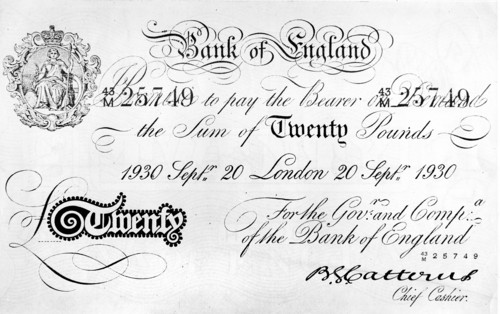 Bank of England
43/M 25749 to pay the Bearer on 43/M 25749
the Sum of Twenty Pounds
1930 Septr. 20 London 20 Septr. 1930
For the Govr. and Compa.
of the Bank of England
£Twenty
43/M 25749
B.G. Catterns
Chief Cashier.